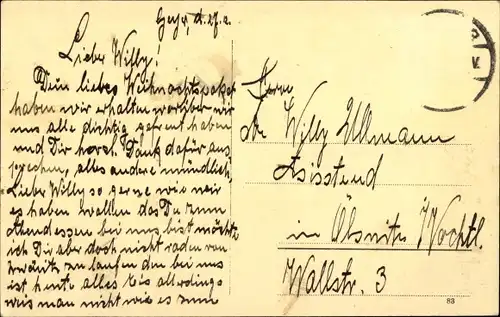 Geyer, d. 27. 12.
Lieber Willy!
Dein liebes Weihnachtspaket
haben wir erhalten worüber wir
uns alle dichtig gefreut haben
und Dir herzl. Dank dafür aus
sprechen, alles andere mündlich,
Lieber Willy so gerne wie wir
es haben wollen das Du zum
Abendessen bei uns bist möcht
ich Dir aber doch nicht raden von
zu laufen den bei uns
ist heute alles Eis allerdings
weis man nicht wie es zum
Herrn
Willy Ullmann
Assistend
in Ölsnitz i/Vochtl.
Wallstr. 3
83